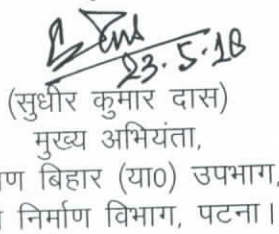 23.5.18
(सुधीर कुमार दास)
मुख्य अभियंता,
ण बिहार (या0) उपभाग,
निर्माण विभाग, पटना।